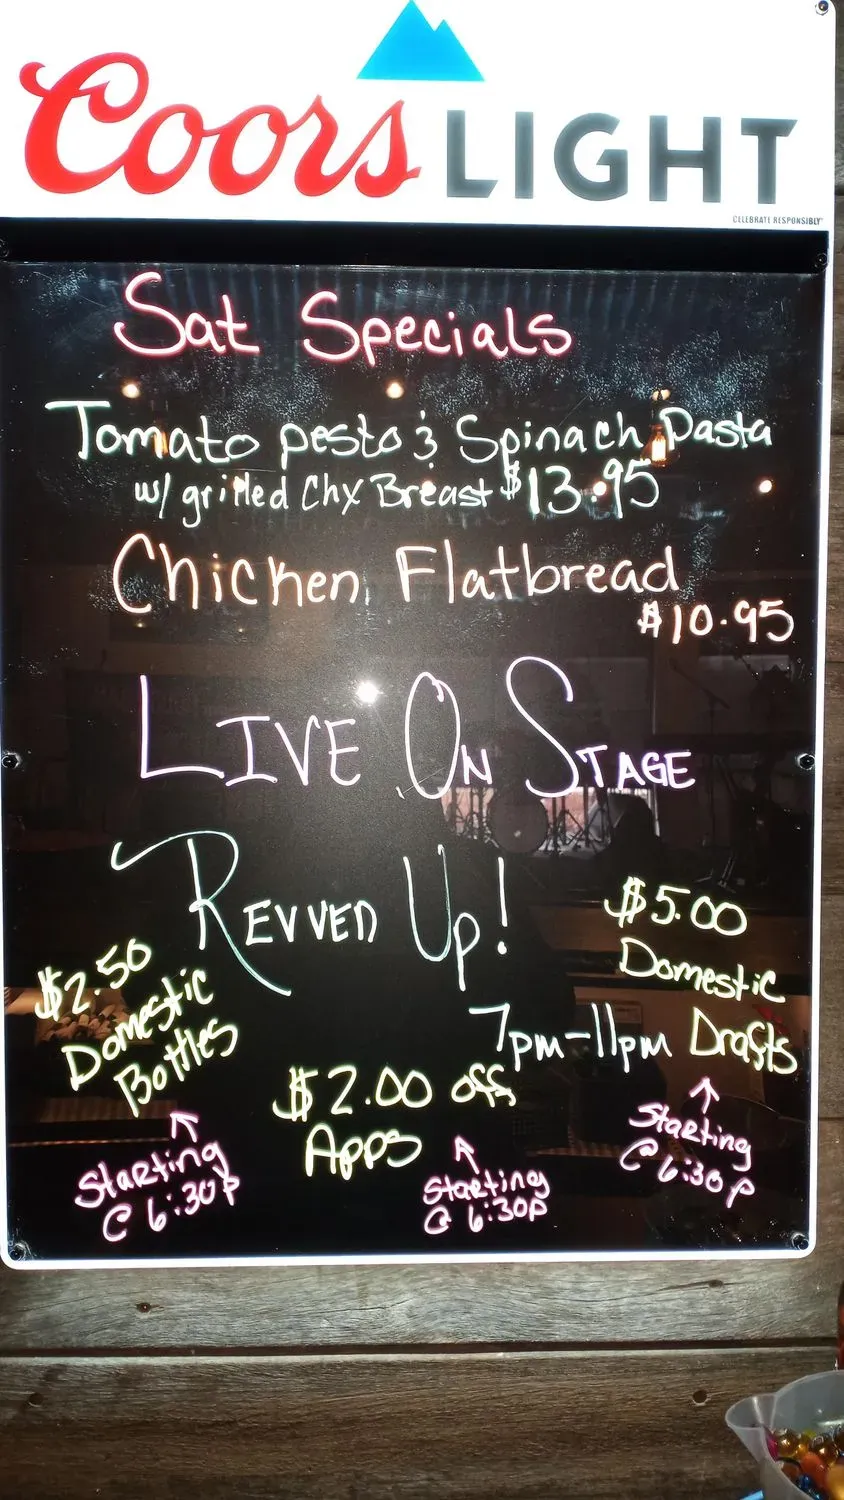 Coors LIGHT
CELEBRATE RESPONSIBLY®
Sat Specials
Tomato pesto & Spinach Pasta
w/ grilled Chx Breast $13.95
Chicken Flatbread
$10.95
LIVE ON STAGE
REVVED Up!
7pm-11pm
$2.50
Domestic
Bottles
Starting
@ 6:30p
$2.00 off
Apps
Starting
@ 6:30p
$5.00
Domestic
Drafts
Starting
@ 6:30p